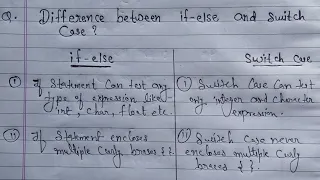 Q. Difference between if-else and Switch
Case ?
if-else
Switch Case
(i) if Statement Can test any
type of expression like
int, Char, float etc.
(i) Switch Case Can test
only integer and Character
expression.
(ii) if Statement encloses
multiple Curly braces { }.
(ii) Switch Case never
encloses multiple Curly
braces { }.